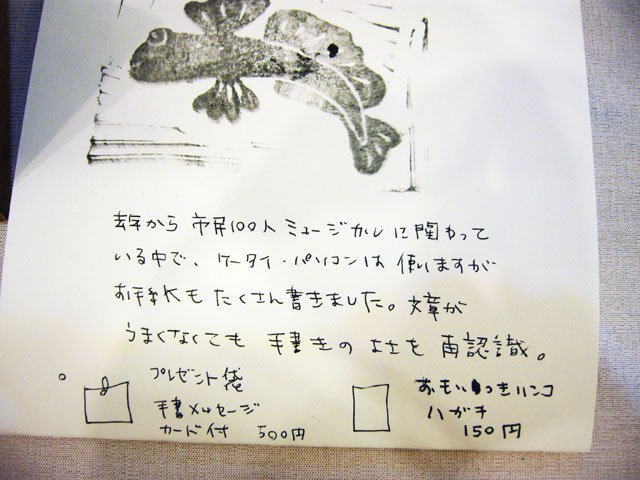 去年から 市民100人 ミュージカルに関わって
いる中で、ケータイ・パソコンは 使いますが
お手紙も たくさん書きました。文章が
うまくなくても 手書きの よさを 再認識。
プレゼント袋
手書メッセージ
カード付 500円
おもいつきハンコ
ハガキ
150円